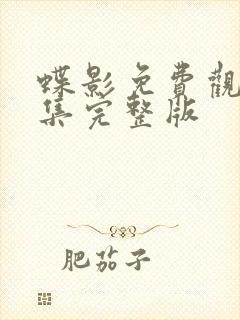 蝶影免費觀
集完整版
肥茄子